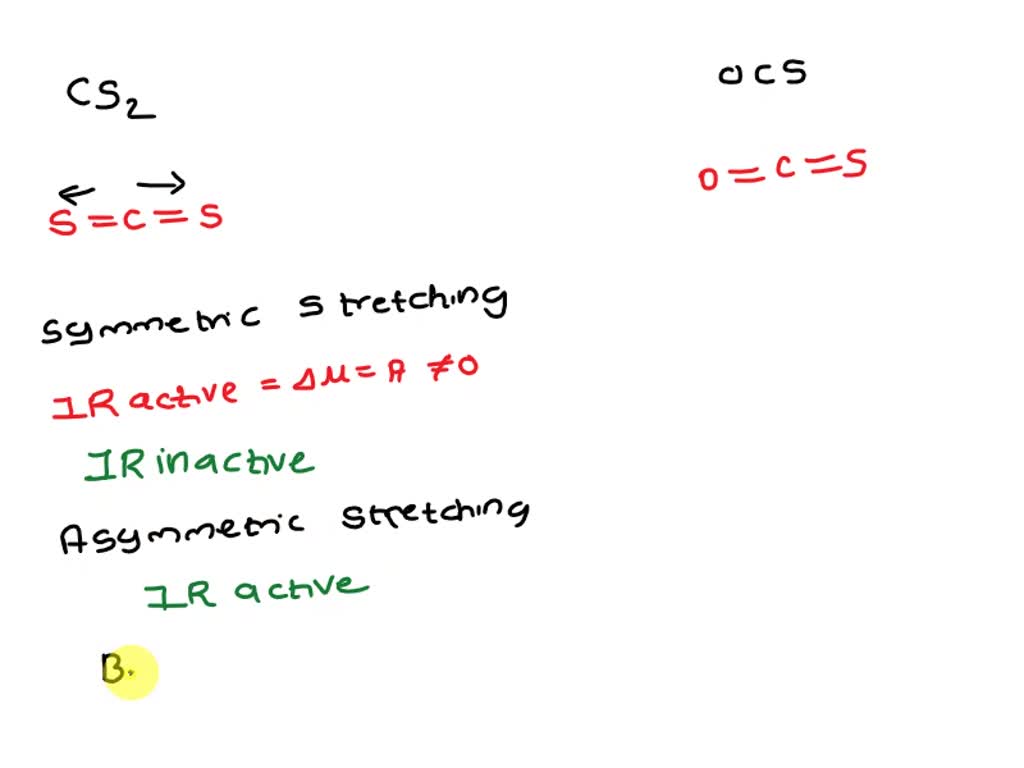 CS₂
S=C=S
Symmetric Stretching
IR active = Δμ = A ≠ 0
IR inactive
Asymmetric stretching
IR active
B.
OCS
O=C=S